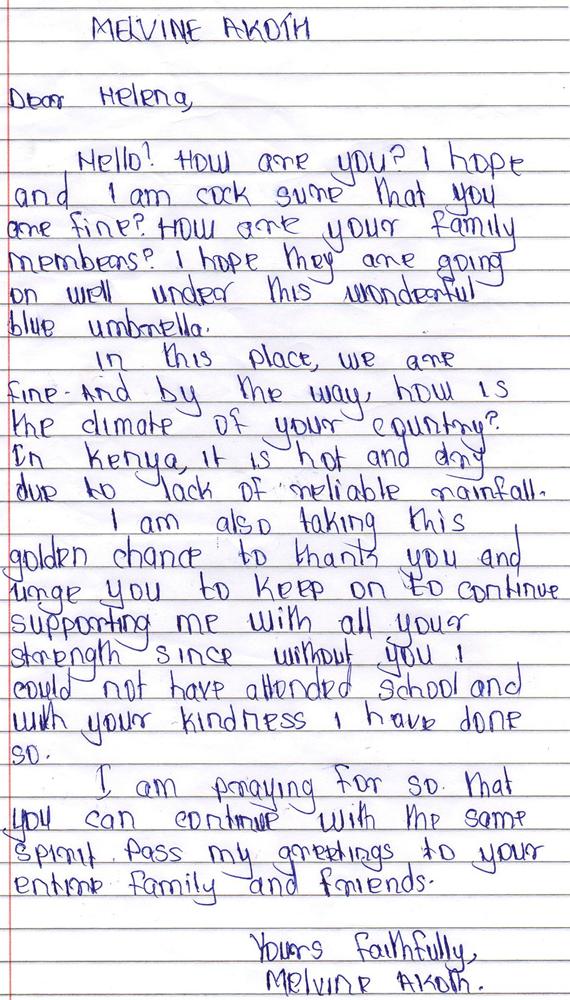 MELVINE AKOTH
Dear Helena,
Hello! How are you? I hope
and I am cock sure that you
are fine? How are your family
members? I hope they are going
on well under this wonderful
blue umbrella.
In this place, we are
fine. And by the way, how is
the climate of your country?
In Kenya, it is hot and dry
due to lack of reliable rainfall.
I am also taking this
golden chance to thank you and
urge you to keep on to continue
supporting me with all your
strength since without you I
could not have attended school and
with your kindness I have done
so.
I am praying for so that
you can continue with the same
spirit. Pass my greetings to your
entire family and friends.
Yours faithfully,
Melvine Akoth.